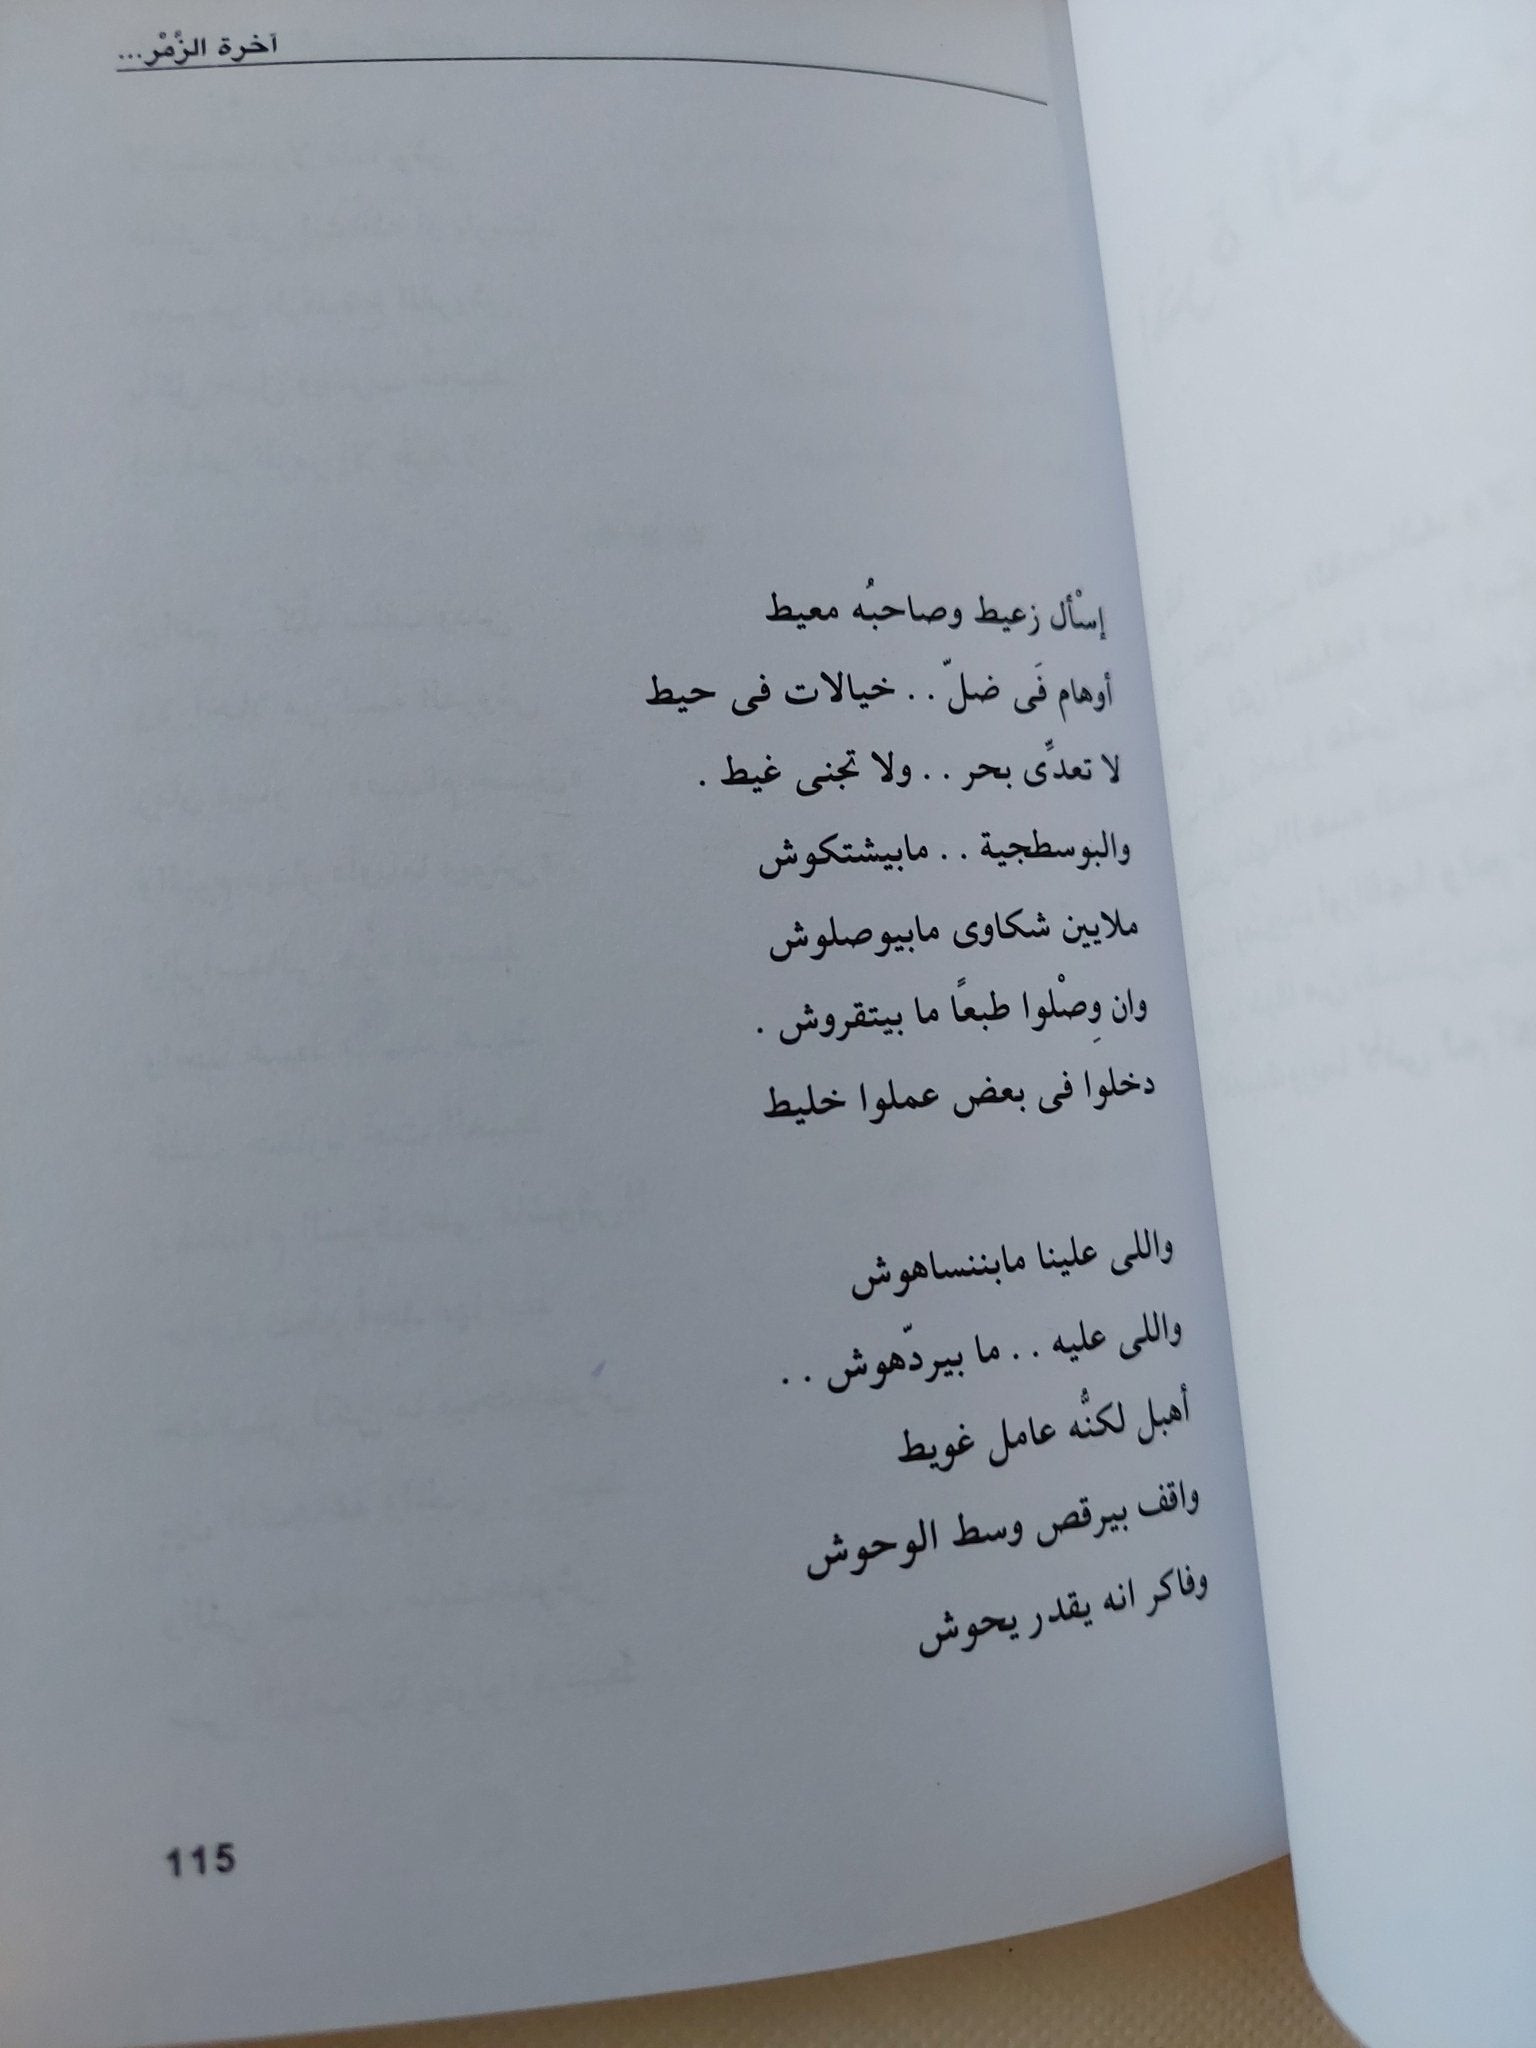 آخرة الزَّمْر...
إسْأل زعيط وصاحبُه معيط
أوهام فَى ضلّ . . خيالات فى حيط
لا تعدىِّ بحر . . ولا تجنى غيط .
والبوسطجية . . مابيشتكوش
ملايين شكاوى مابيوصلوش
وان وِصْلوا طبعًا ما بيتقروش .
دخلوا فى بعض عملوا خليط
واللى علينا مابننساهوش
واللى عليه . . ما بيردّهوش . .
أهبل لكنُّه عامل غويط
واقف بيرقص وسط الوحوش
وفاكر انه يقدر يحوش
115